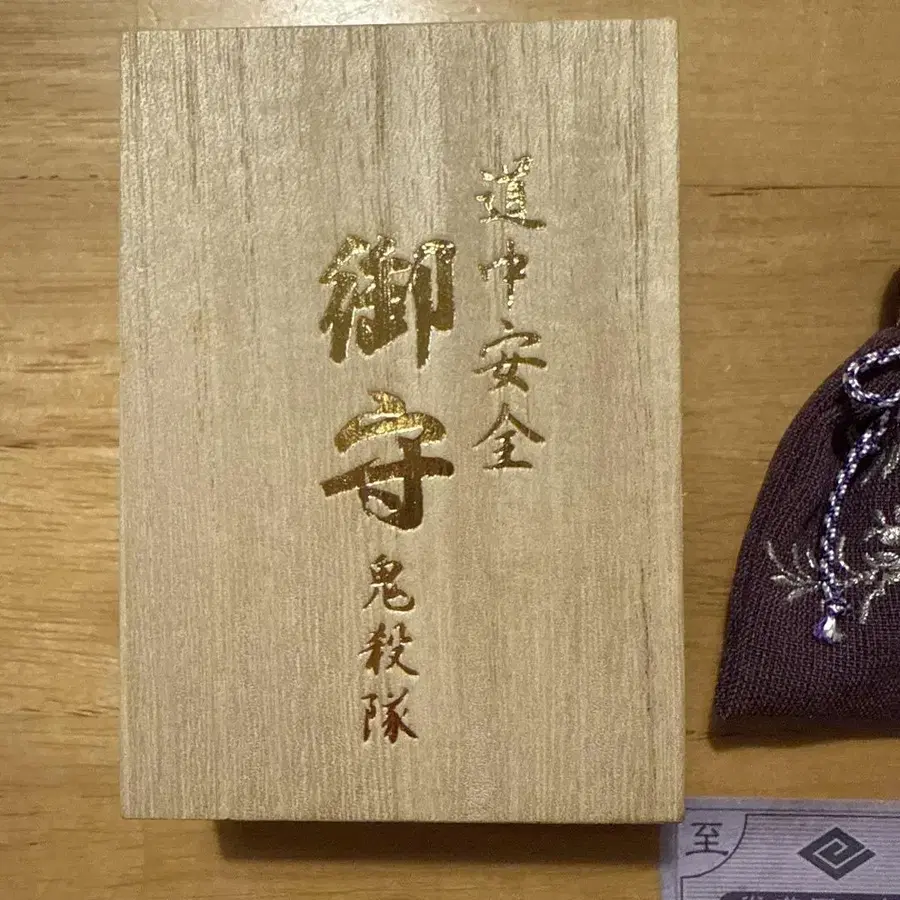 道中安全
御守
鬼殺隊
至